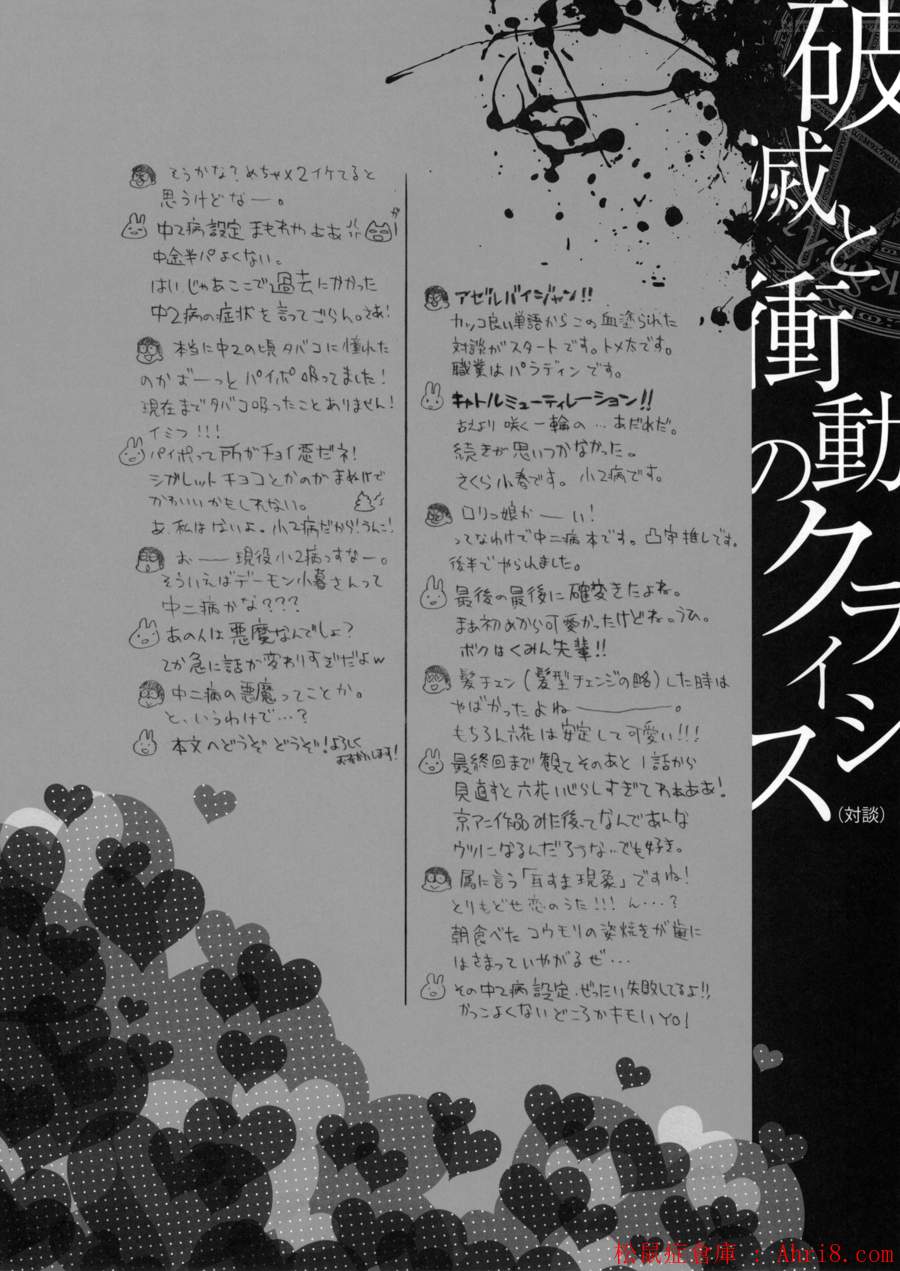 破滅と衝動のクライシス
(対談)
アゼルバイジャン!!
カッコ良い単語からこの血塗られた
対談がスタートです。トメ太です。
職業はパラディンです。
キャトルミューティレーション!!
古えより咲く一輪の…あだれだ。
続きが思いつかなかった。
さくら小春です。小2病です。
ロリっ娘かーい!
ってなわけで中二病本です。凸守推しです。
後半でやられました。
最後の最後に確変きたよね。
まあ初めから可愛かったけどね。うひ。
ボクはくみん先輩!!
髪チェン(髪型チェンジの略)した時は
やばかったよね―――。
もちろん六花は安定して可愛い!!!
最終回まで観てそのあと1話から
見直すと六花いじらしすぎてわぁああ!
京アニ作品みた後ってなんであんな
ウツになるんだろうな…でも好き。
属に言う「耳すま現象」ですね!
とりもどせ恋のうた!!! ん…?
朝食べたコウモリの姿焼きが歯に
はさまっていやがるぜ…
その中2病設定、ぜったい失敗してるよ!!
かっこよくないどころかキモいYO!
そうかな?めちゃ×2イケてると
思うけどなー。
中2病設定まもれやぁああ
中途半パよくない。
はいじゃあここで過去にかかった
中2病の症状を言ってごらん。さあ!
本当に中2の頃タバコに憧れた
のかぼーっとパイポ吸ってました!
現在までタバコ吸ったことありません!
イミフ!!!
パイポって所がチョイ悪だネ!
シガレットチョコとかのがまぬけで
かわいいかもしれない。
あ、私はないよ。小2病だから!うんこ!
おー 現役小2病っすなー。
そういえばデーモン小暮さんって
中二病かな???
あの人は悪魔なんでしょ?
てか急に話が変わりすぎだよw
中二病の悪魔ってことか。
と、いうわけで…?
本文へどうぞどうぞ!よろしく
おねがいします!
松鼠症倉庫 : Ahri8.com